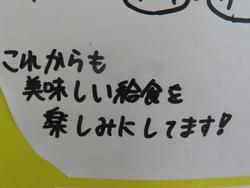 これからも
美味しい給食を
楽しみにしてます!